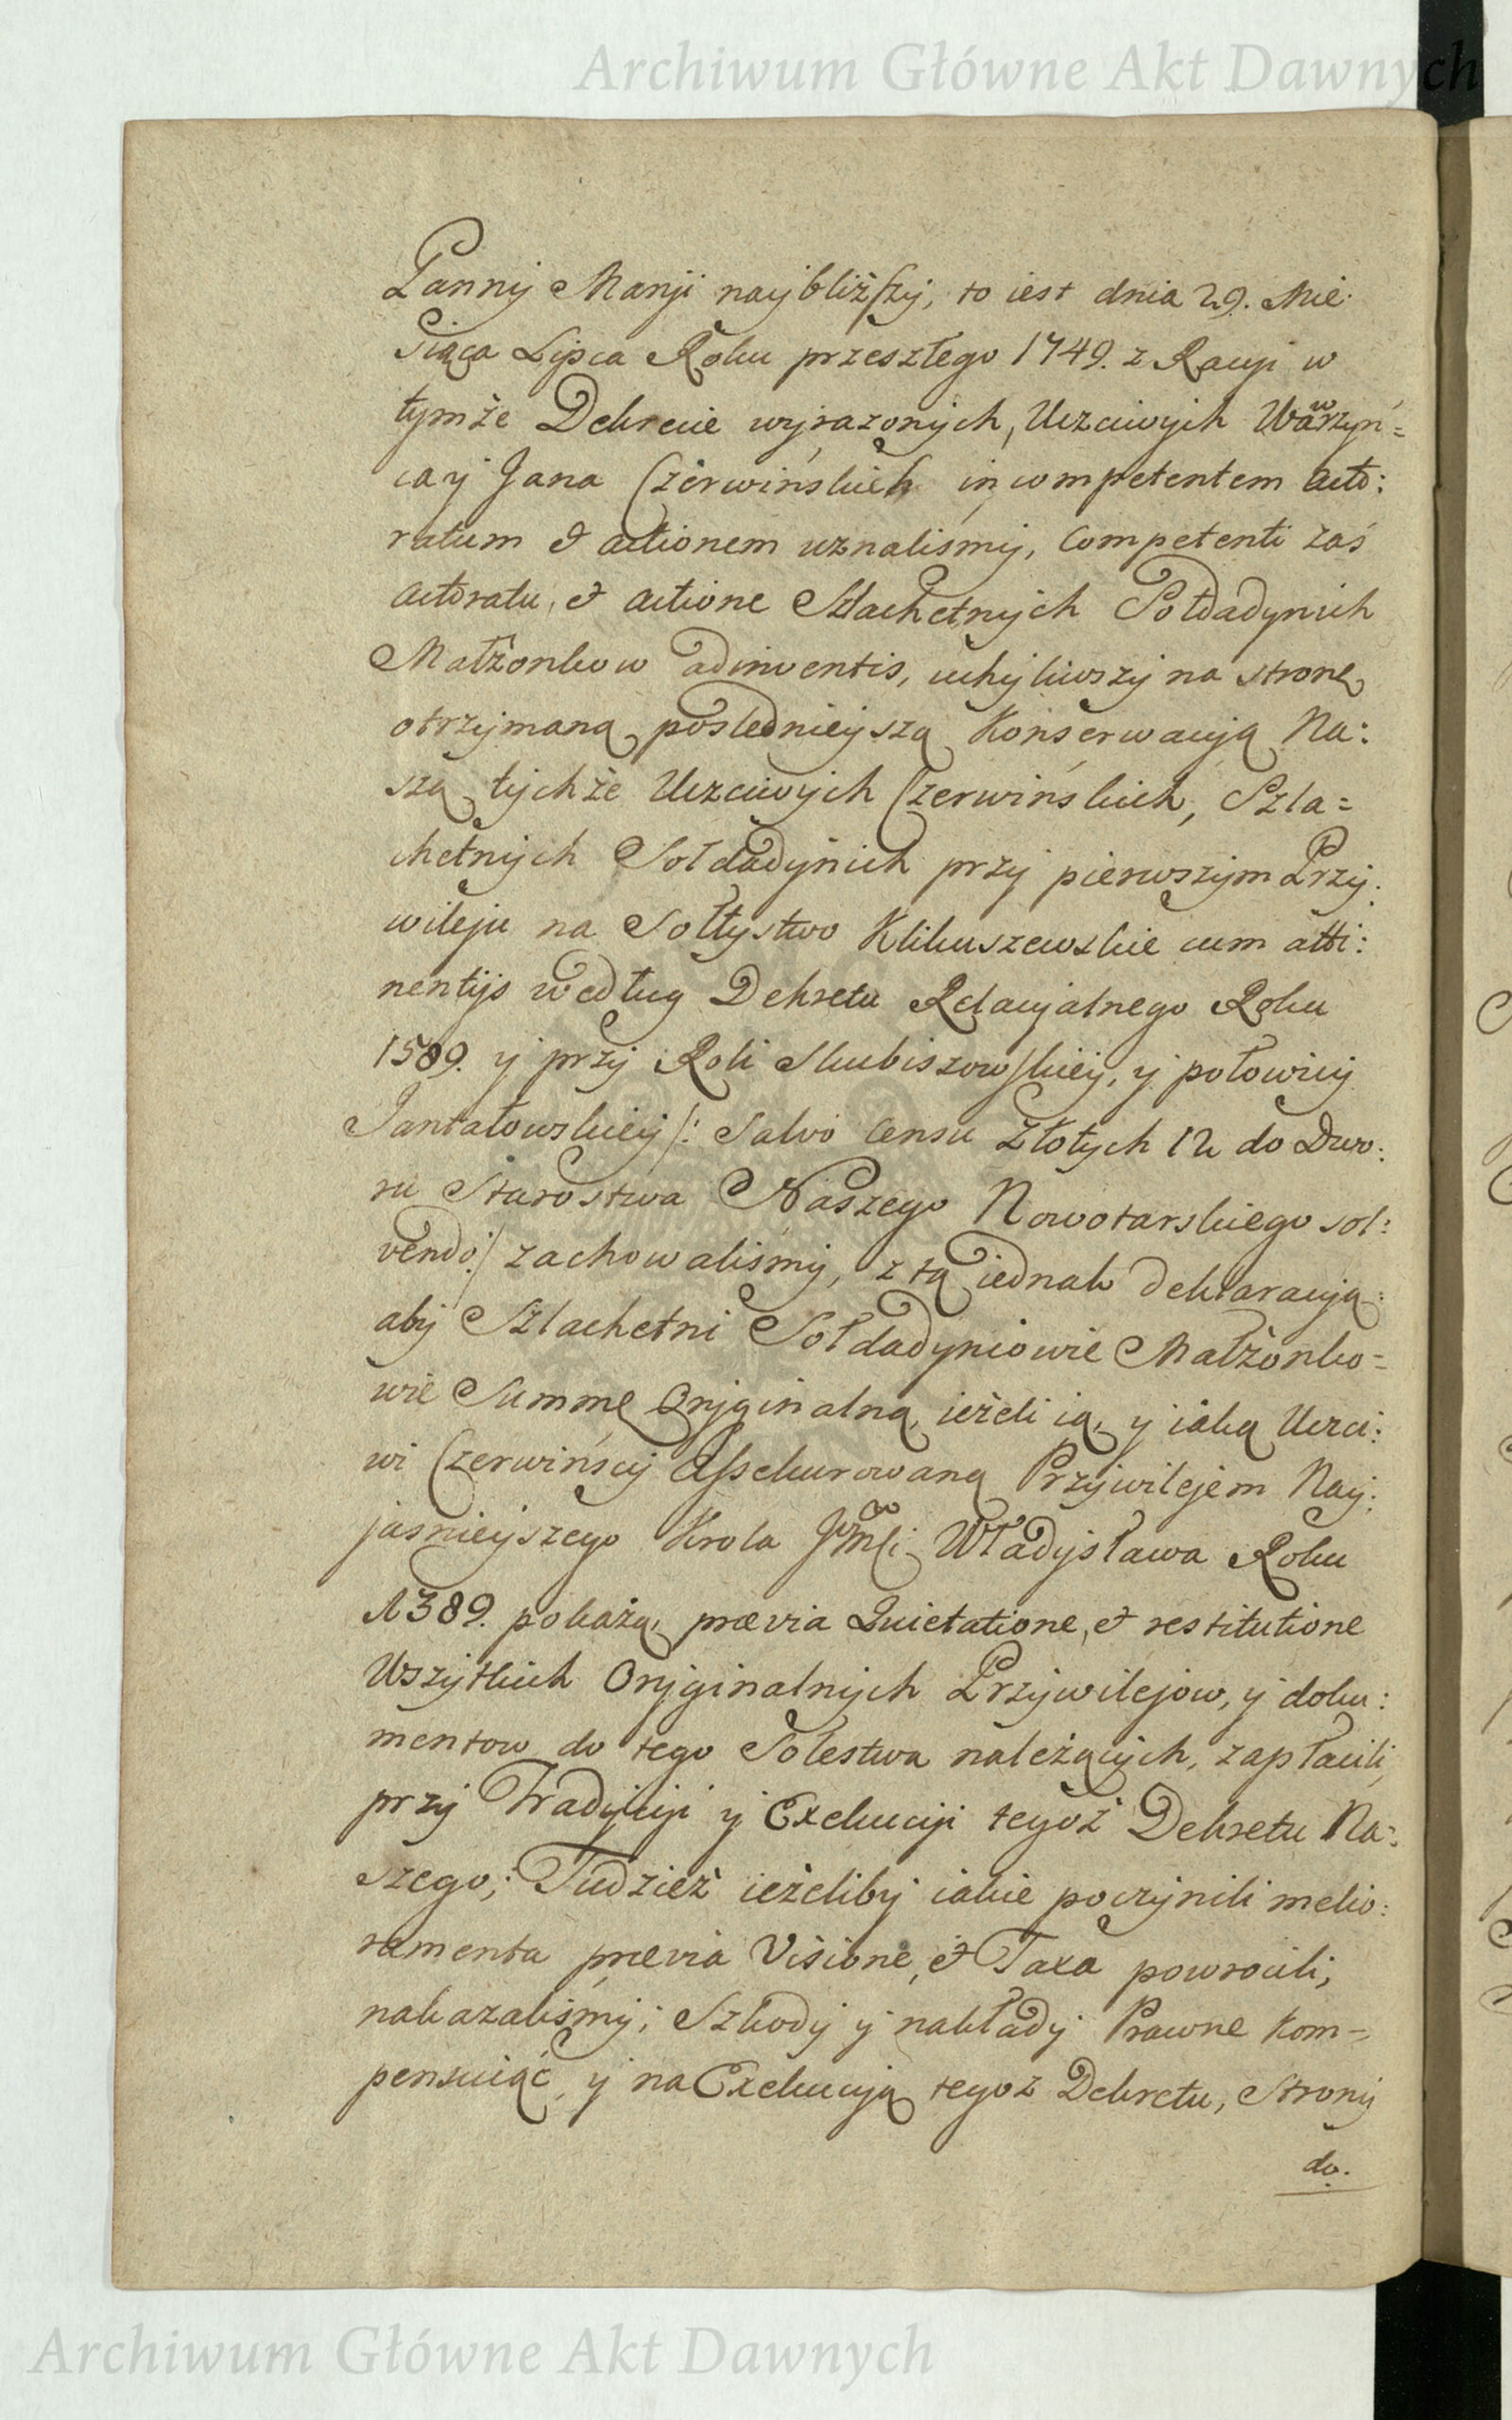 Archiwum Główne Akt Dawnych
Panny Maryi naybliższy, to iest dnia 29. Mie:
siąca Lipca Roku przeszłego 1749. z Racyi w
tymże Dekrecie wyrazonych, Uczciwych Wawrzyń=
ca y Jana Czerwińskich incompetentem acto:
ratum & actionem uznaliśmy, Competenti zaś
actoratu, & actione Szlachetnych Sołdadynich
Małżonkow adinventis, uchyliwszy na stronę
otrzymaną poslednieyszą Konserwacyą Na:
szą tychże Uczciwych Czerwińskich, Szla=
chetnych Sołdadynich przy pierwszym Przy:
wileju na Sołtystwo Klikuszewskie cum atti:
nentijs według Dekretu Relacyalnego Roku
1589. y przy Roli Skubiszowskiey, y połowicy
Jantałowskiey /: salvo Censu Złotych 12 do Dwo:
ru Starostwa Naszego Nowotarskiego sol:
vendo:/ zachowaliśmy, z tą iednak deklaracyą:
aby Szlachetni Sołdadyniowie Małżonko=
wie Summę Oryginalną, ieżeli ią, y iaką Uczci:
wi Czerwińscy Assekurowaną Przywilejem Nay:
jasnieyszego Krola Jmści Władysława Roku
1389. pokażą, prævia Quietatione, & restitutione
Wszytkich Oryginalnych Przywilejow, y doku:
mentow do tego Sołestwa należących, zapłacili,
przy Tradycyi y Exekucyi tegoż Dekretu Na:
szego; Tudzież ieżeliby iakie poczynili melio:
ramenta prævia Visione, & Taxa powrocili,
nakazaliśmy; Szkody y nakłady Prawne Kom=
pensuiąc, y na Exekucyą tegoż Dekretu, Strony
do.
Archiwum Główne Akt Dawnych